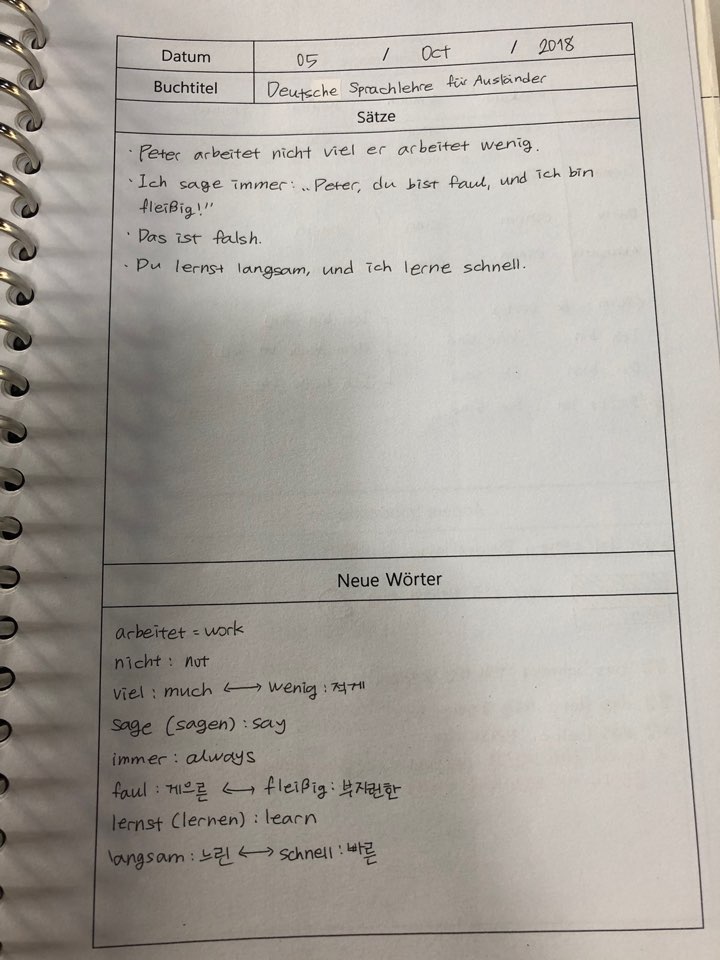 Datum 05 / Oct / 2018
Buchtitel Deutsche Sprachlehre für Ausländer
Sätze
· Peter arbeitet nicht viel er arbeitet wenig.
· Ich sage immer: „Peter, du bist faul, und ich bin
fleißig!"
· Das ist falsh.
· Du lernst langsam, und ich lerne schnell.
Neue Wörter
arbeitet = work
nicht : not
viel : much ⟷ wenig : 적게
sage (sagen) : say
immer : always
faul : 게으른 ⟷ fleißig : 부지런한
lernst (lernen) : learn
langsam : 느린 ⟷ schnell : 빠른